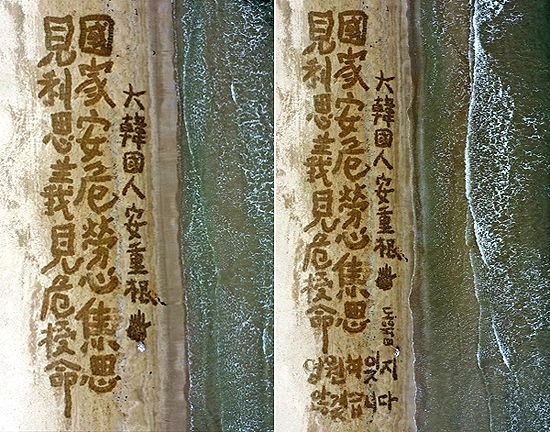 大韓國人安重根
國家安危勞心焦思
見利思義見危授命
大韓國人安重根
國家安危勞心焦思
見利思義見危授命
영원히 잊지
않겠습니다